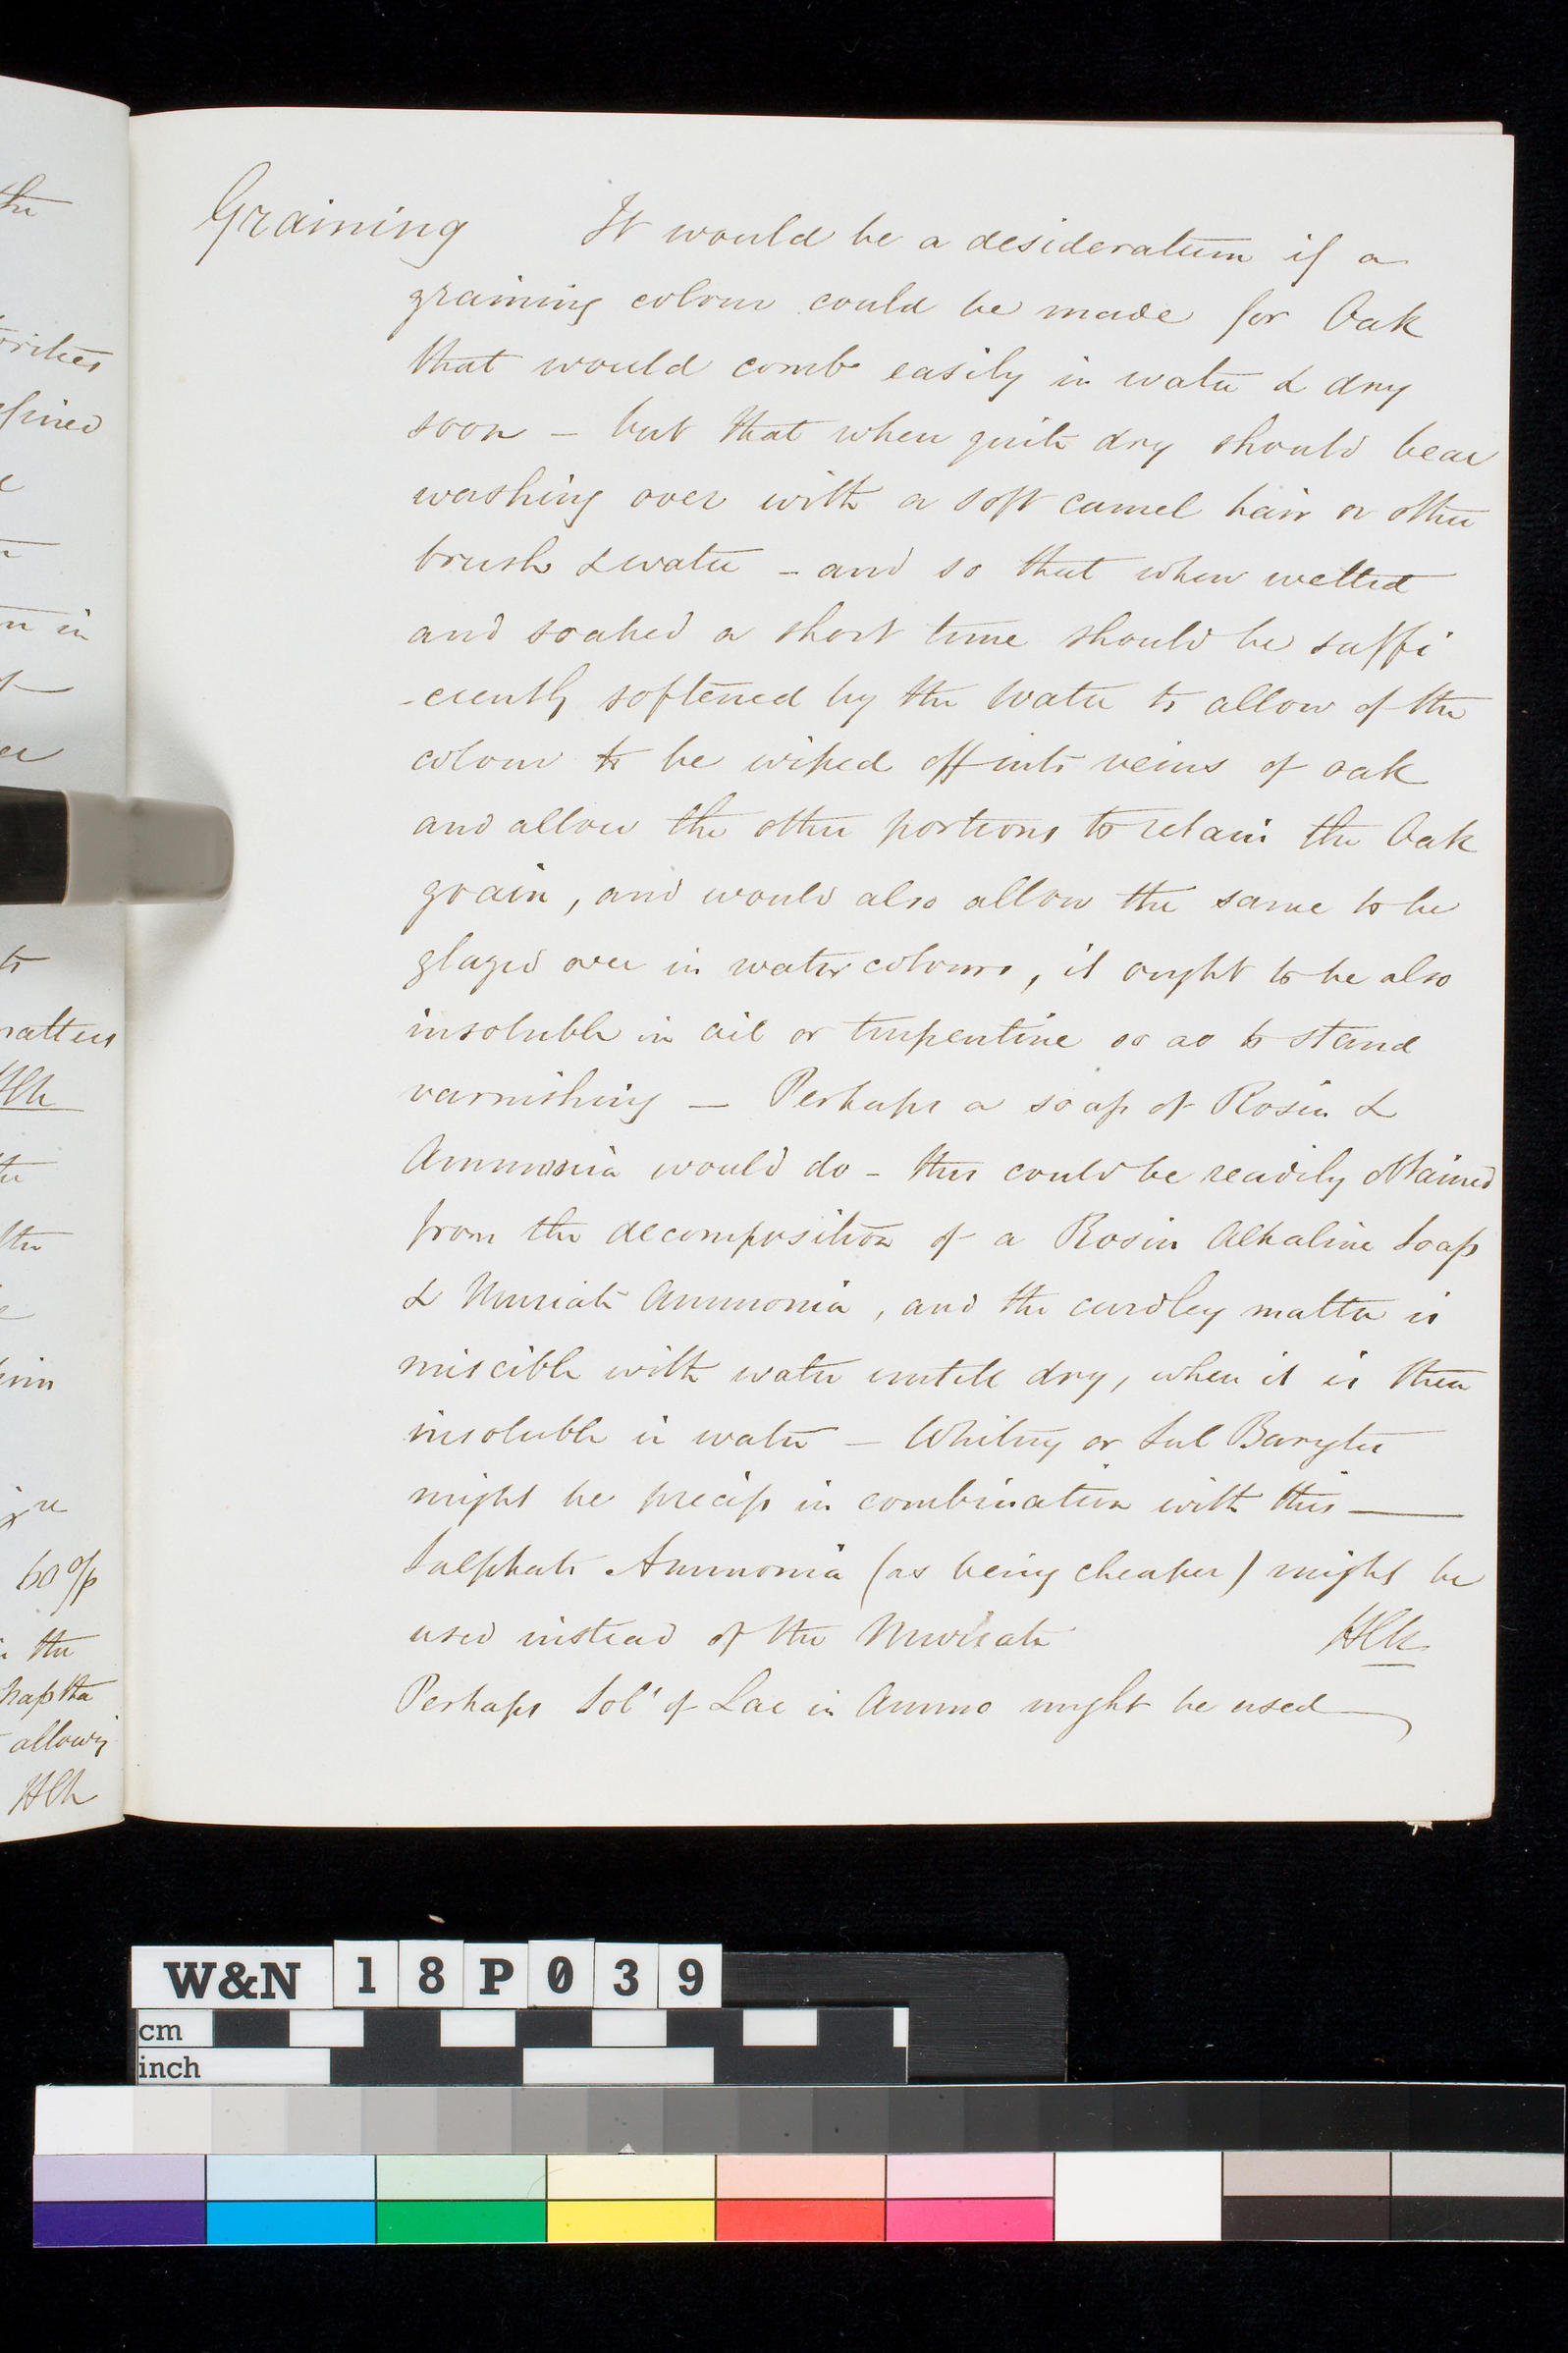 Graining It would be a desideratum if a
graining colour could be made for Oak
that would comb easily in water & dry
soon – but that when quite dry should bear
washing over with a soft camel hair or other
brush & water – and so that when wetted
and soaked a short time should be suffi
-ciently softened by the water to allow of the
colour to be wiped off into veins of oak
and allow the other portions to retain the Oak
grain, and would also allow the same to be
glazed over in water colours, it ought to be also
insoluble in oil or turpentine so as to stand
varnishing — Perhaps a soap of Rosin &
Ammonia would do – this could be readily obtained
from the decomposition of a Rosin Alkaline Soap
& Muriate Ammonia, and the curdley matter is
miscible with water untill dry, when it is then
insoluble in water – Whiting or Sul Barytes
might be precip in combination with this —
Sulphate Ammonia (as being cheaper) might be
used instead of the Muriate HCN
Perhaps Solⁿ of Lac in Ammo might be used
the
efined
in
er
to
matters
HCN
the
the
60 %
in the
naptha
allowing
HCN
W&N 18P039
cm
inch